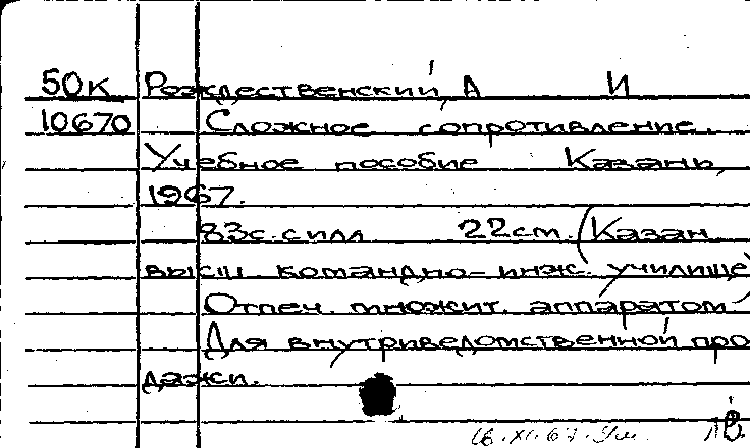 50К Рождественский, А И
10670 Сложное сопротивление.
Учебное пособие Казань,
1967.
83с. с илл 22 см. (Казан.
высш. командно-инж. училище)
Отпеч. множит. аппаратом
Для внутриведомственной про
дажи.